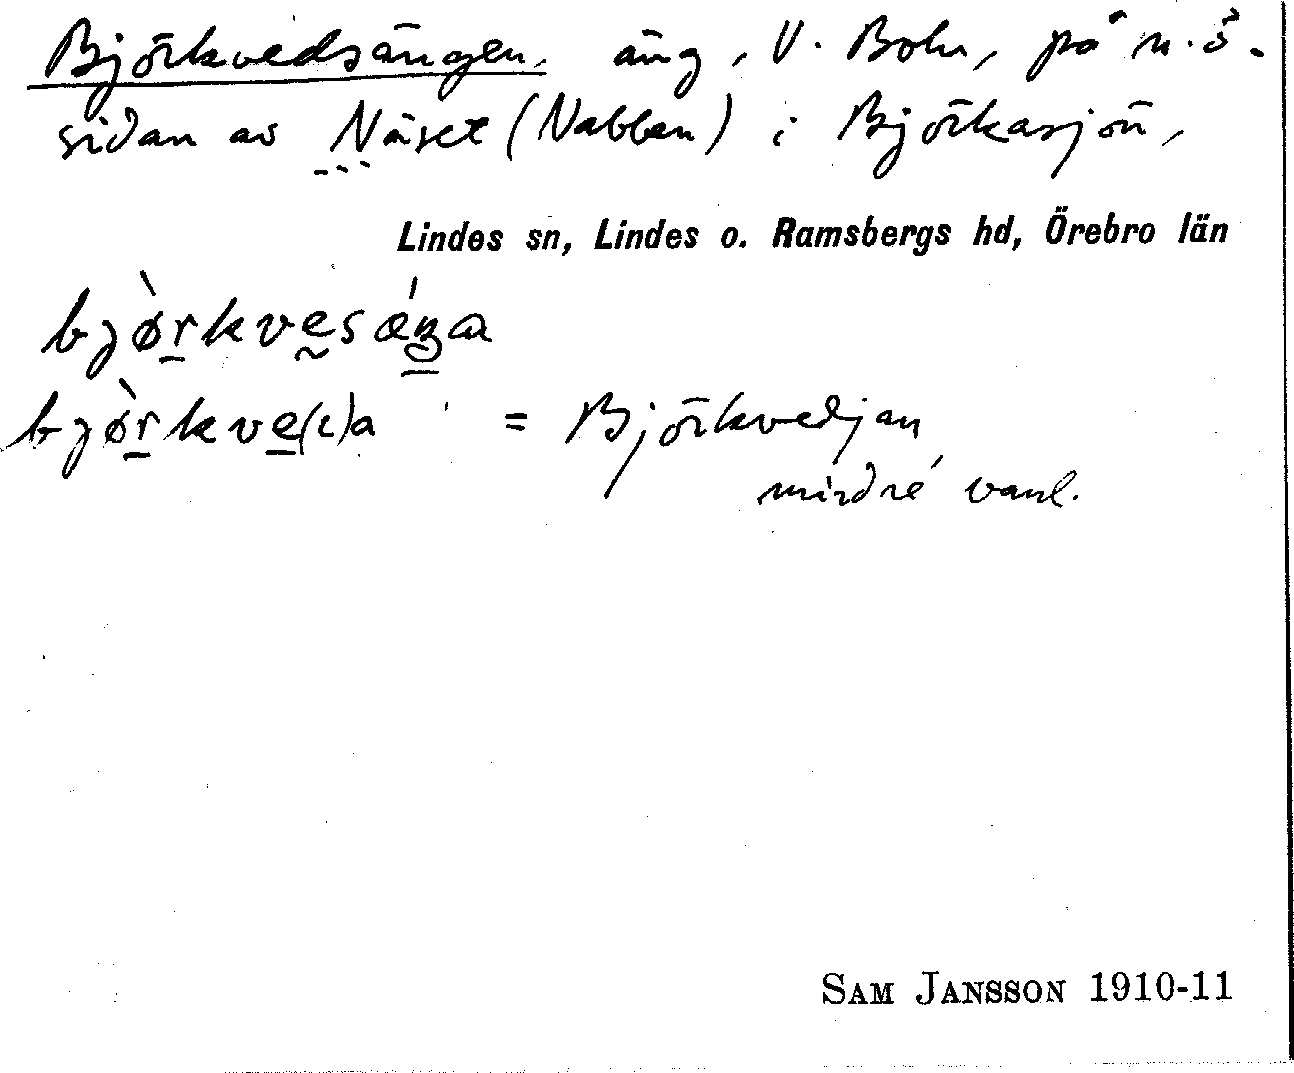 Björkvedsängen, äng, V. Bohr, på n.ö.
sidan av Näset (Nabben) i Björkasjön,
Lindes sn, Lindes o. Ramsbergs hd, Örebro län
bjø̀rkvesǽŋa
bjø̀rkve(ι)a = Björkvedjan
mindre vanl.
SAM JANSSON 1910-11